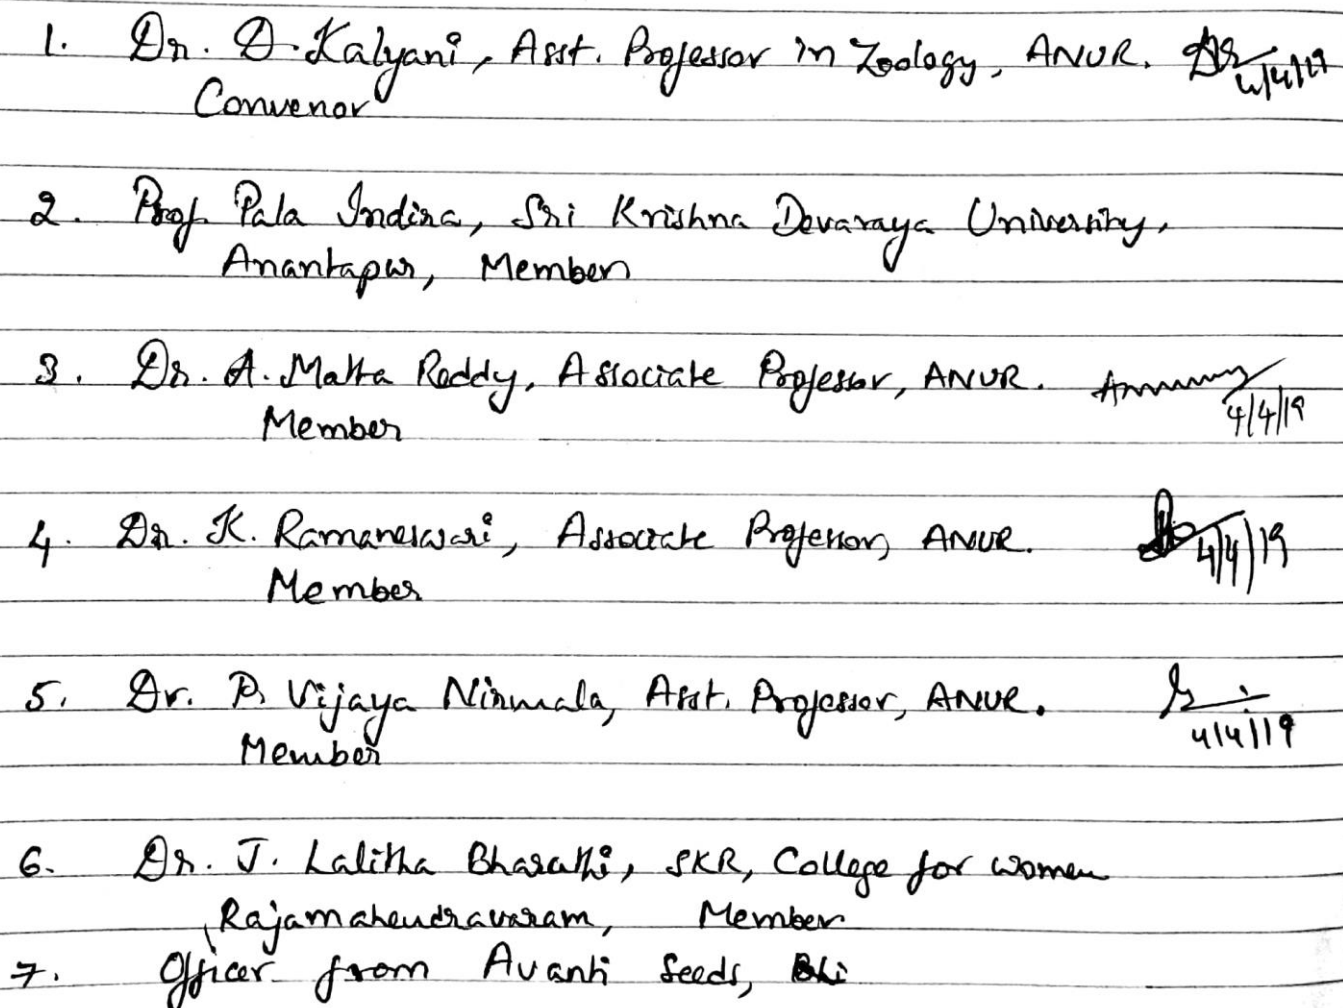 1. Dr. D. Kalyani, Asst. Professor in Zoology, ANUR. 4/4/19
Convenor
2. Prof. Pala Indira, Sri Krishna Devaraya University,
Anantapur, Member
3. Dr. A. Matta Reddy, Associate Professor, ANUR.
Member 4/4/19
4. Dr. K. Ramaneswari, Associate Professor, ANUR. 4/4/19
Member
5. Dr. P. Vijaya Nirmala, Asst. Professor, ANUR.
Member 4/4/19
6. Dr. J. Lalitha Bharathi, SKR, College for women
Rajamahendravaram, Member
7. Officer from Avanti Seeds,